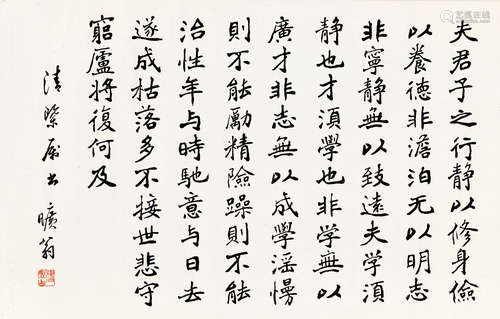 夫君子之行静以修身儉
以養德非澹泊无以明志
非寧静無以致遠夫学須
静也才須學也非学無以
廣才非志無以成學滛慢
則不能勵精險躁則不能
治性年与時馳意与日去
遂成枯落多不接世悲守
窮廬將復何及
曠翁